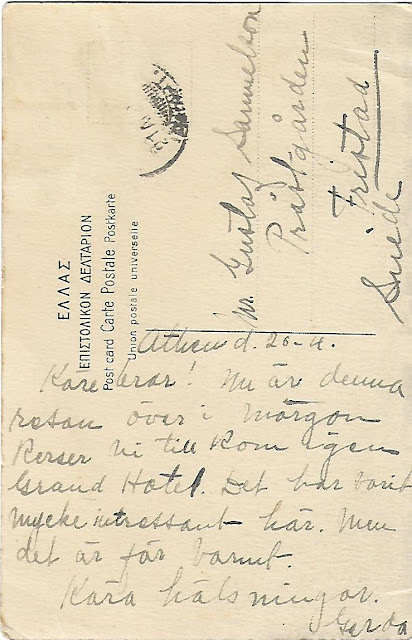 ΕΛΛΑΣ
ΕΠΙΣΤΟΛΙΚΟΝ ΔΕΛΤΑΡΙΟΝ
Post card Carte Postale Postkarte
Union postale universelle
Gustaf Samuelson
Prästgården
Fristad
Suède
Athen d. 20-4.
Käre brar! Nu är denna
resan över i morgon
Reser vi till Rom igen
Grand Hotel. Det har varit
mycke intressant här. Men
det är för varmt.
Kära hälsningar.
Gerda